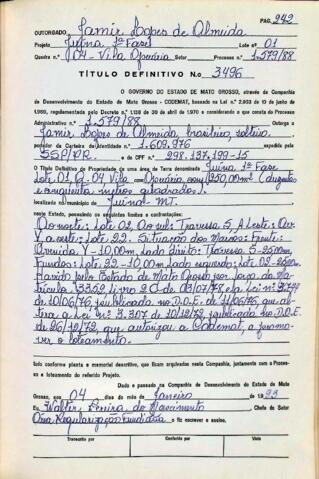 PAG. 242
OUTORGADO, Jamir Lopes de Almeida
Projeto Juína 1ª Fase Lote nº 01
Quadra n.º 04 - Vila Operária Setor Processo n.º 1.579/88
TÍTULO DEFINITIVO N.o 3496
O GOVERNO DO ESTADO DE MATO GROSSO, através da Companhia
de Desenvolvimento do Estado de Mato Grosso - CODEMAT, baseado na Lei n.º 2.903 de 10 de junho de
regulamentada pelo Decreto n.º 1.138 de 20 de abril de 1970 e considerando o que consta do Processo
Administrativo n.º 1.579/88 Outorga a
Jamir Lopes de Almeida, brasileiro, solteiro,
portador da Carteira de Identidade n.º 1.609,976 expedida pela
SSP/PR. e do CPF n.º 298.137.199-15
O Título Definitivo de Propriedade, de uma área de Terra denominada Juína 1ª Fase
Lote 01 Q. 04 Vila Operária com 250,00m² (duzentos
e cinquenta metros quadrados).
localizada no município de Juína-MT.
neste Estado, possuindo os seguintes limites e confrontações:
Ao norte: Lote 02, Ao sul: Travessa 5, A Leste:
a oeste: Lote 22. Situação dos Marcos: Frente:
Avenida 1 - 10,00m. Lado direito: Travessa 5-25,00m.
Fundos: Lote 22 - 10,00m. Lado esquerdo: Lote 02-25,00m
Havido pelo Estado de Mato Grosso por força da Ma-
trícula 3352, Livro 2 de 03/07/78 e la Lei nº 3.744
de 10/06/76, publicado no D.O.E. de 11/06/76, que al-
tera a Lei nº 3.307 de 10/12/72, publicado no D.O.E.
de 26/12/72, que autorizou a Codemat, a promo-
ver o loteamento.
tudo conforme planta e memorial descritivo, que ficam arquivados nesta Companhia, juntamente com o Proces-
so e loteamento do referido Projeto.
Dado e passado na Companhia de Desenvolvimento do Estado de Mato
Grosso, aos 04 dias do mês de Janeiro de 1.993
Eu, Walter Pereira do Nascimento Chefe do Setor
Regularização Fundiária o fiz escrever e assino.
Transcrito por Conferido por Visto